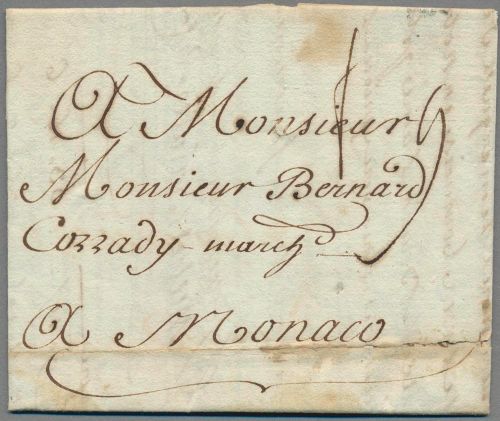 A Monsieur
Monsieur Bernard
Corrady march^d
A Monaco